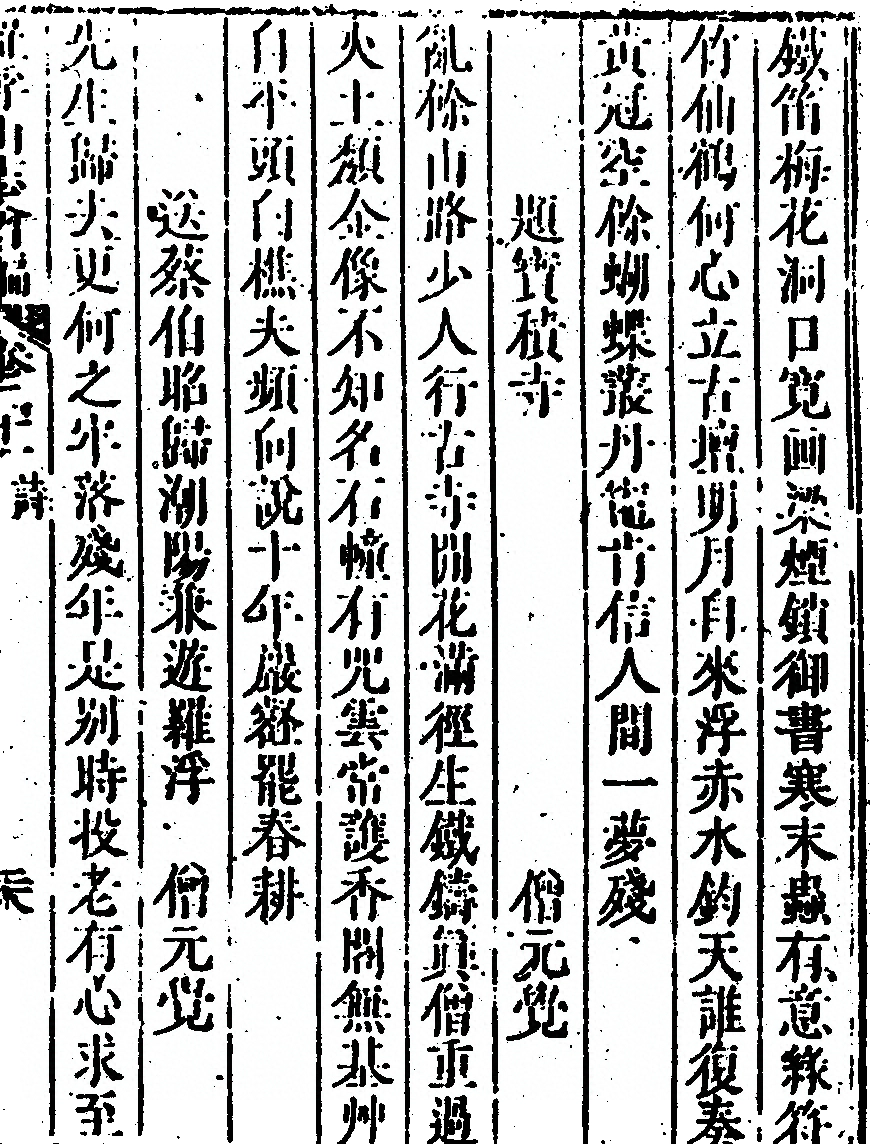 鐵笛梅花洞口寬画梁煙鎖御書寒木蟲有意緣符
竹仙鶴何心立古壇明月自來浮赤水鈞天誰復奏
黃冠空餘蝴蝶叢丹竈肯信人間一夢殘
題寶積寺 僧元覺
亂餘山路少人行古寺閒花滿徑生鐵鑄眞僧重過
火土頹金像不知名石幢有咒雲常護香閣無基艸
自平頭白樵夫頻向說十年巖壑罷春耕
送蔡伯昭歸潮陽兼遊羅浮 僧元覺
先生歸去更何之牢落殘年是別時投老有心求至
詩